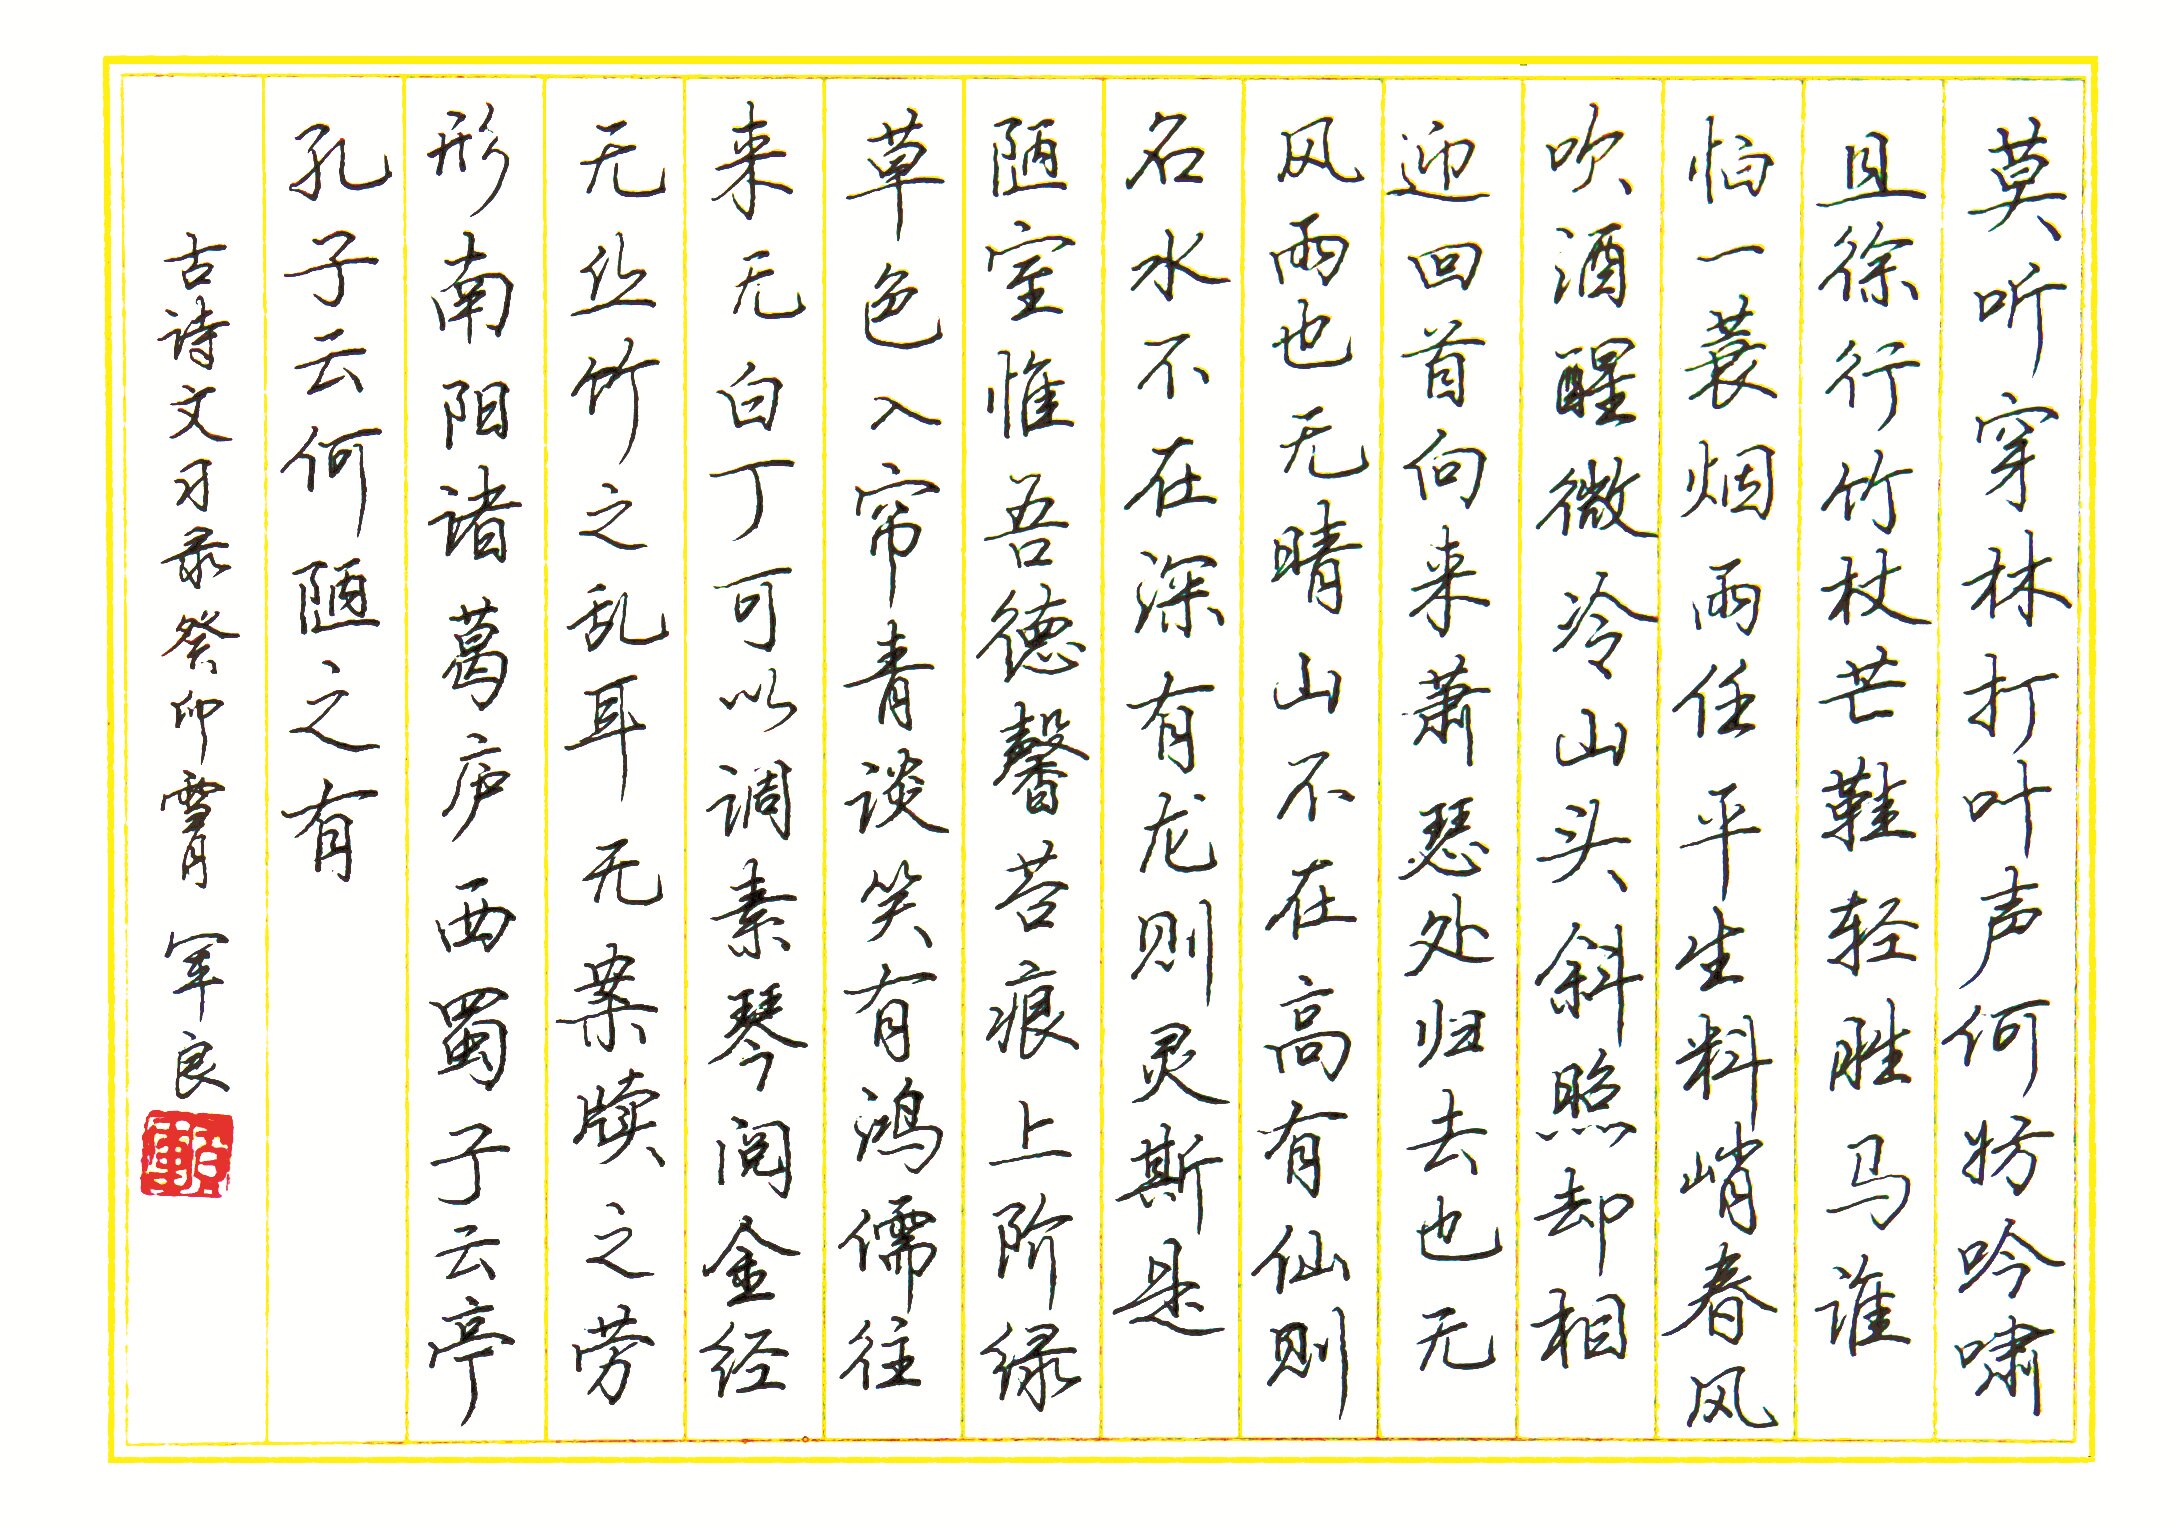 莫听穿林打叶声何妨吟啸
且徐行竹杖芒鞋轻胜马谁
怕一蓑烟雨任平生料峭春风
吹酒醒微冷山头斜照却相
迎回首向来萧瑟处归去也无
风雨也无晴山不在高有仙则
名水不在深有龙则灵斯是
陋室惟吾德馨苔痕上阶绿
草色入帘青谈笑有鸿儒往
来无白丁可以调素琴阅金经
无丝竹之乱耳无案牍之劳
形南阳诸葛庐西蜀子云亭
孔子云何陋之有
古诗文习录癸卯 军良